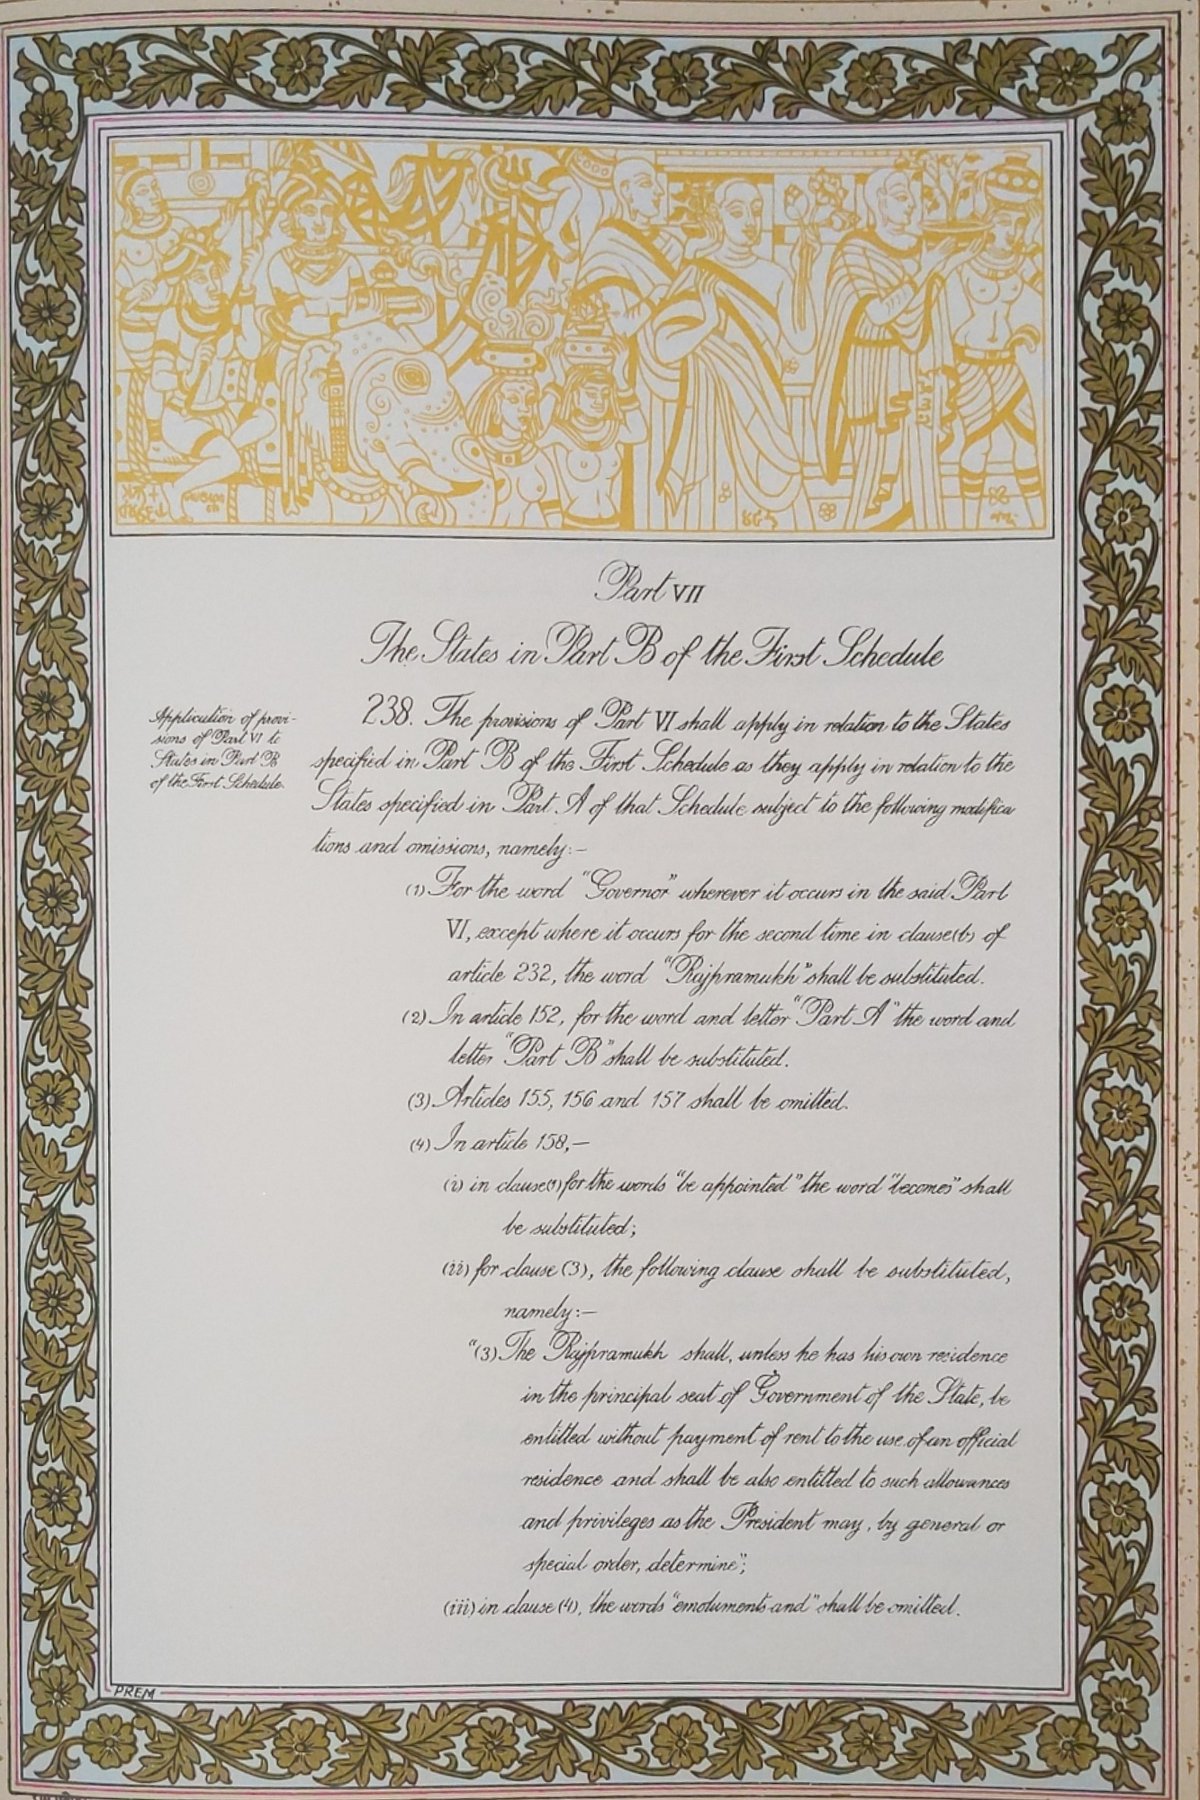 Part VII
The States in Part B of the First Schedule
Application of provi-
sions of Part VI to
States in Part B
of the First Schedule.
238. The provisions of Part VI shall apply in relation to the States
specified in Part B of the First Schedule as they apply in relation to the
States specified in Part A of that Schedule subject to the following modifica
tions and omissions, namely:—
(1) For the word "Governor" wherever it occurs in the said Part
VI, except where it occurs for the second time in clause (b) of
article 232, the word "Rajpramukh" shall be substituted.
(2) In article 152, for the word and letter "Part A" the word and
letter "Part B" shall be substituted.
(3) Articles 155, 156 and 157 shall be omitted.
(4) In article 158,—
(i) in clause (1) for the words "be appointed" the word "becomes" shall
be substituted;
(ii) for clause (3), the following clause shall be substituted,
namely:—
"(3) The Rajpramukh shall, unless he has his own residence
in the principal seat of Government of the State, be
entitled without payment of rent to the use of an official
residence and shall be also entitled to such allowances
and privileges as the President may, by general or
special order, determine";
(iii) in clause (4), the words "emoluments and" shall be omitted.
PREM